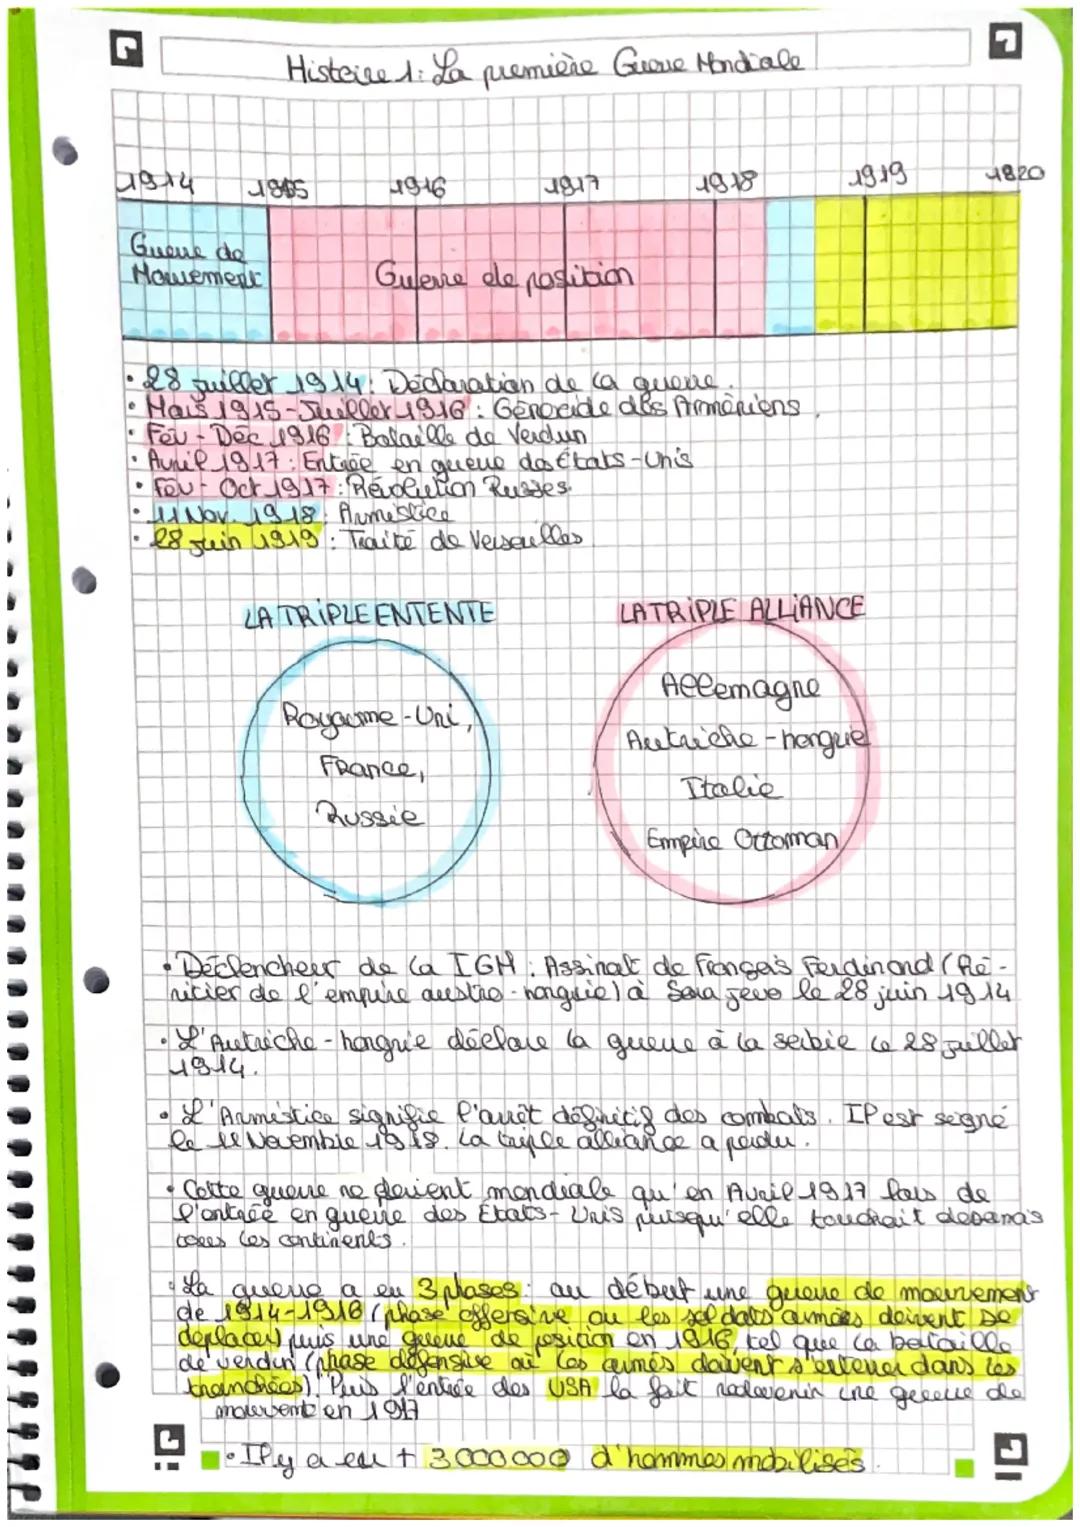 Histoire 1: La première Guerre Mondiale
1914 1915 1916 1917 1918 1919 1920
Guerre de
Mouvement
Guerre de position
• 28 juillet 1914: Déclaration de la guerre.
• Mars 1915-Juillet 1916 : Génocide des Arméniens.
• Fev - Déc 1916 : Bataille de Verdun
• Avril 1917 : Entrée en guerre des États-Unis
• Fev - Oct 1917 : Révolution Russes.
• 11 Nov. 1918 : Armistice
• 28 juin 1919 : Traité de Versailles
LA TRIPLE ENTENTE
Royaume-Uni,
France,
Russie
LA TRIPLE ALLIANCE
Allemagne
Autriche-hongrie
Italie
Empire Ottoman
• Déclencheur de la 1GM : Assinat de François Ferdinand (Hé-
ritier de l'empire austro-hongrie) à Sarajevo le 28 juin 1914
• L'Autriche-hongrie déclare la guerre à la serbie le 28 juillet
1914.
• L'Armistice signifie l'arrêt définitif des combats. Il est signé
le 11 Novembre 1918. La triple alliance a perdu.
• Cette guerre ne devient mondiale qu'en Avril 1917 lors de
l'entrée en guerre des États-Unis puisqu'elle touchait désormais
tous les continents.
• La guerre a eu 3 phases : au début une guerre de mouvement
de 1914-1916 (phase offensive ou les soldats armées doivent se
déplacer) puis une guerre de position en 1916, tel que la bataille
de verdun (phase défensive où les armés doivent s'enterrer dans les
tranchées). Puis l'entrée des USA la fait redevenir une guerre de
mouvement en 1917
• Il y a eu + 3 000 000 d'hommes mobilisés.